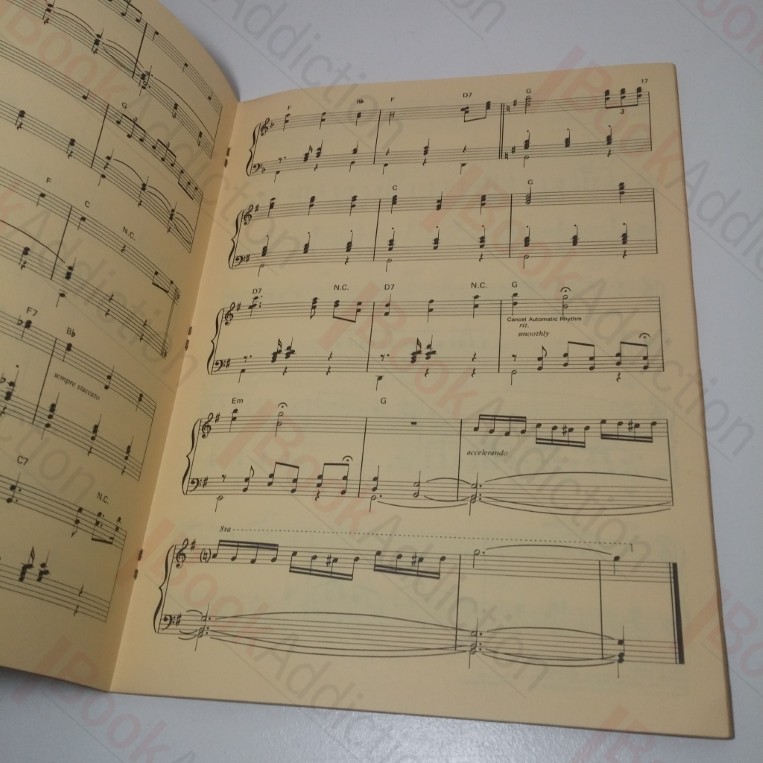 G
F
C
N.C.
F7
B♭
sempre staccato
C7
N.C.
17
F
B♭
F
D7
G
3
C
G
D7
N.C.
D7
N.C.
G
Cancel Automatic Rhythm
rit.
smoothly
Em
G
accelerando
8va
BookAddiction